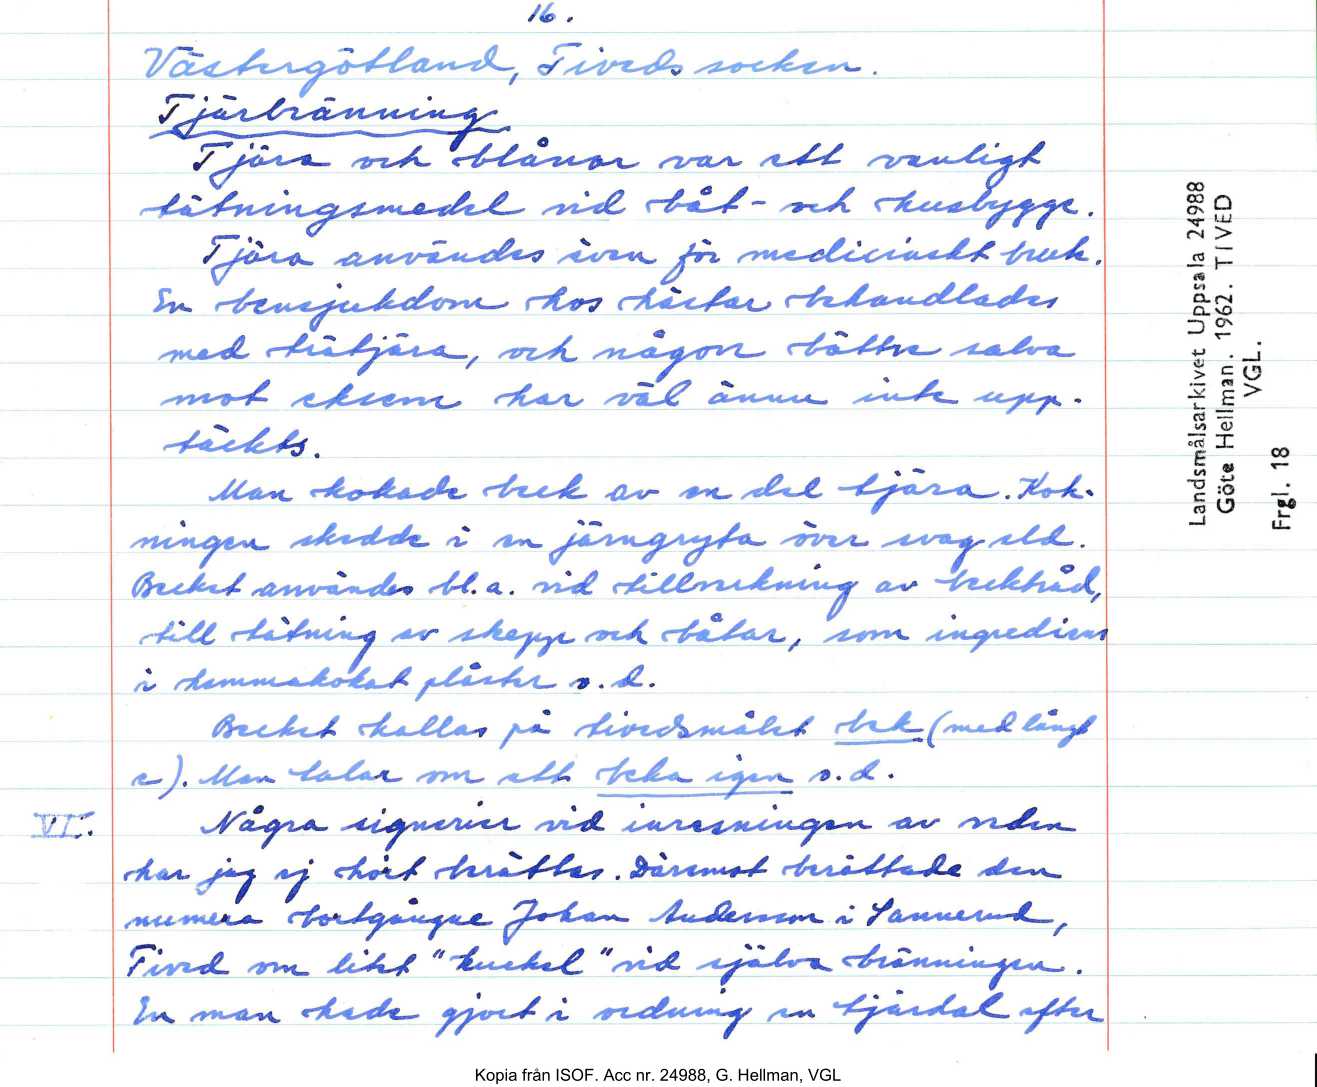 16.
Västergötland, Tiveds socken.
Tjärbränning
Tjära och blånor var ett vanligt
tätningsmedel vid båt- och husbygge.
Tjära användes även för medicinskt bruk.
En bensjukdom hos hästar behandlades
med trätjära, och någon bättre salva
mot eksem har väl ännu inte upp-
täckts.
Man kokade beck av en del tjära. Kok-
ningen skedde i en järngryta över svag eld.
Becket användes bl.a. vid tillverkning av becktråd,
till tätning av skepp och båtar, som ingrediens
i hemmakokat plåster o.d.
Becket kallas på tivedsmålet bek (med långt
e). Man talar om att beka igen o.d.
VI. Några signerier vid inresningen av veden
har jag ej hört berättas. Däremot berättade den
numera bortgångne Johan Andersson i Sannerud,
Tived om litet "kuckel" vid själva bränningen.
En man hade gjort i ordning en tjärdal efter
Landsmålsarkivet Uppsala 24988
Göte Hellman. 1962. TIVED
VGL.
Frgl. 18
Kopia från ISOF. Acc nr. 24988, G. Hellman, VGL